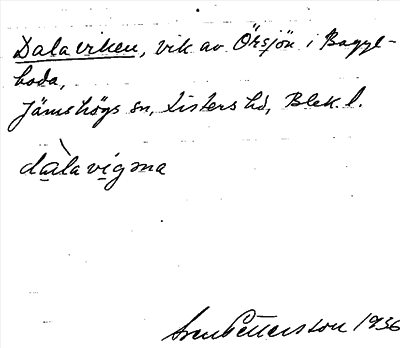 DalavIken, vik av Örsjön i Baggel-
boda,
Jämshögs sn, Listers hd, Blek. l.
dàlavigma
Sven Pettersson 1936